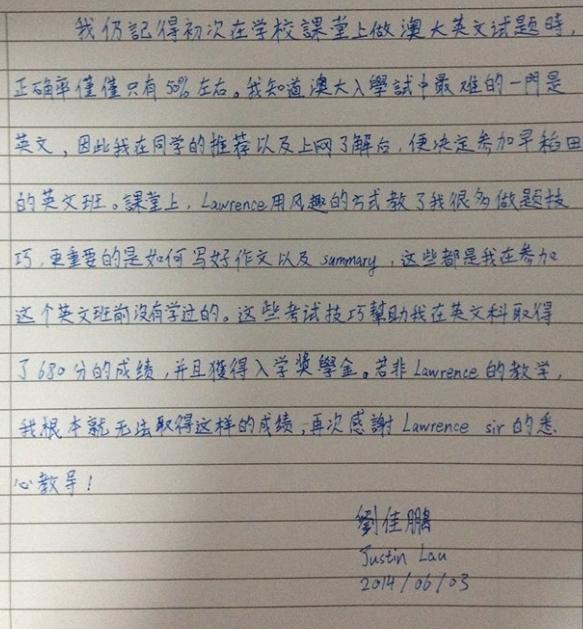 我仍記得初次在学校課堂上做澳大英文试題時，
正确率僅僅只有50%左右。我知道澳大入學試中最难的一門是
英文，因此我在同学的推荐以及上网了解后，便决定参加早稻田
的英文班。課堂上，Lawrence用风趣的方式教了我很多做题技
巧，更重要的是如何写好作文以及summary，这些都是我在参加
这个英文班前没有学过的。这些考试技巧幫助我在英文科取得
了680分的成绩，并且獲得入学奖學金。若非Lawrence的教学，
我根本就无法取得这样的成绩，再次感謝Lawrence sir的悉
心教导！
劉佳鵬
Justin Lau
2014/06/03